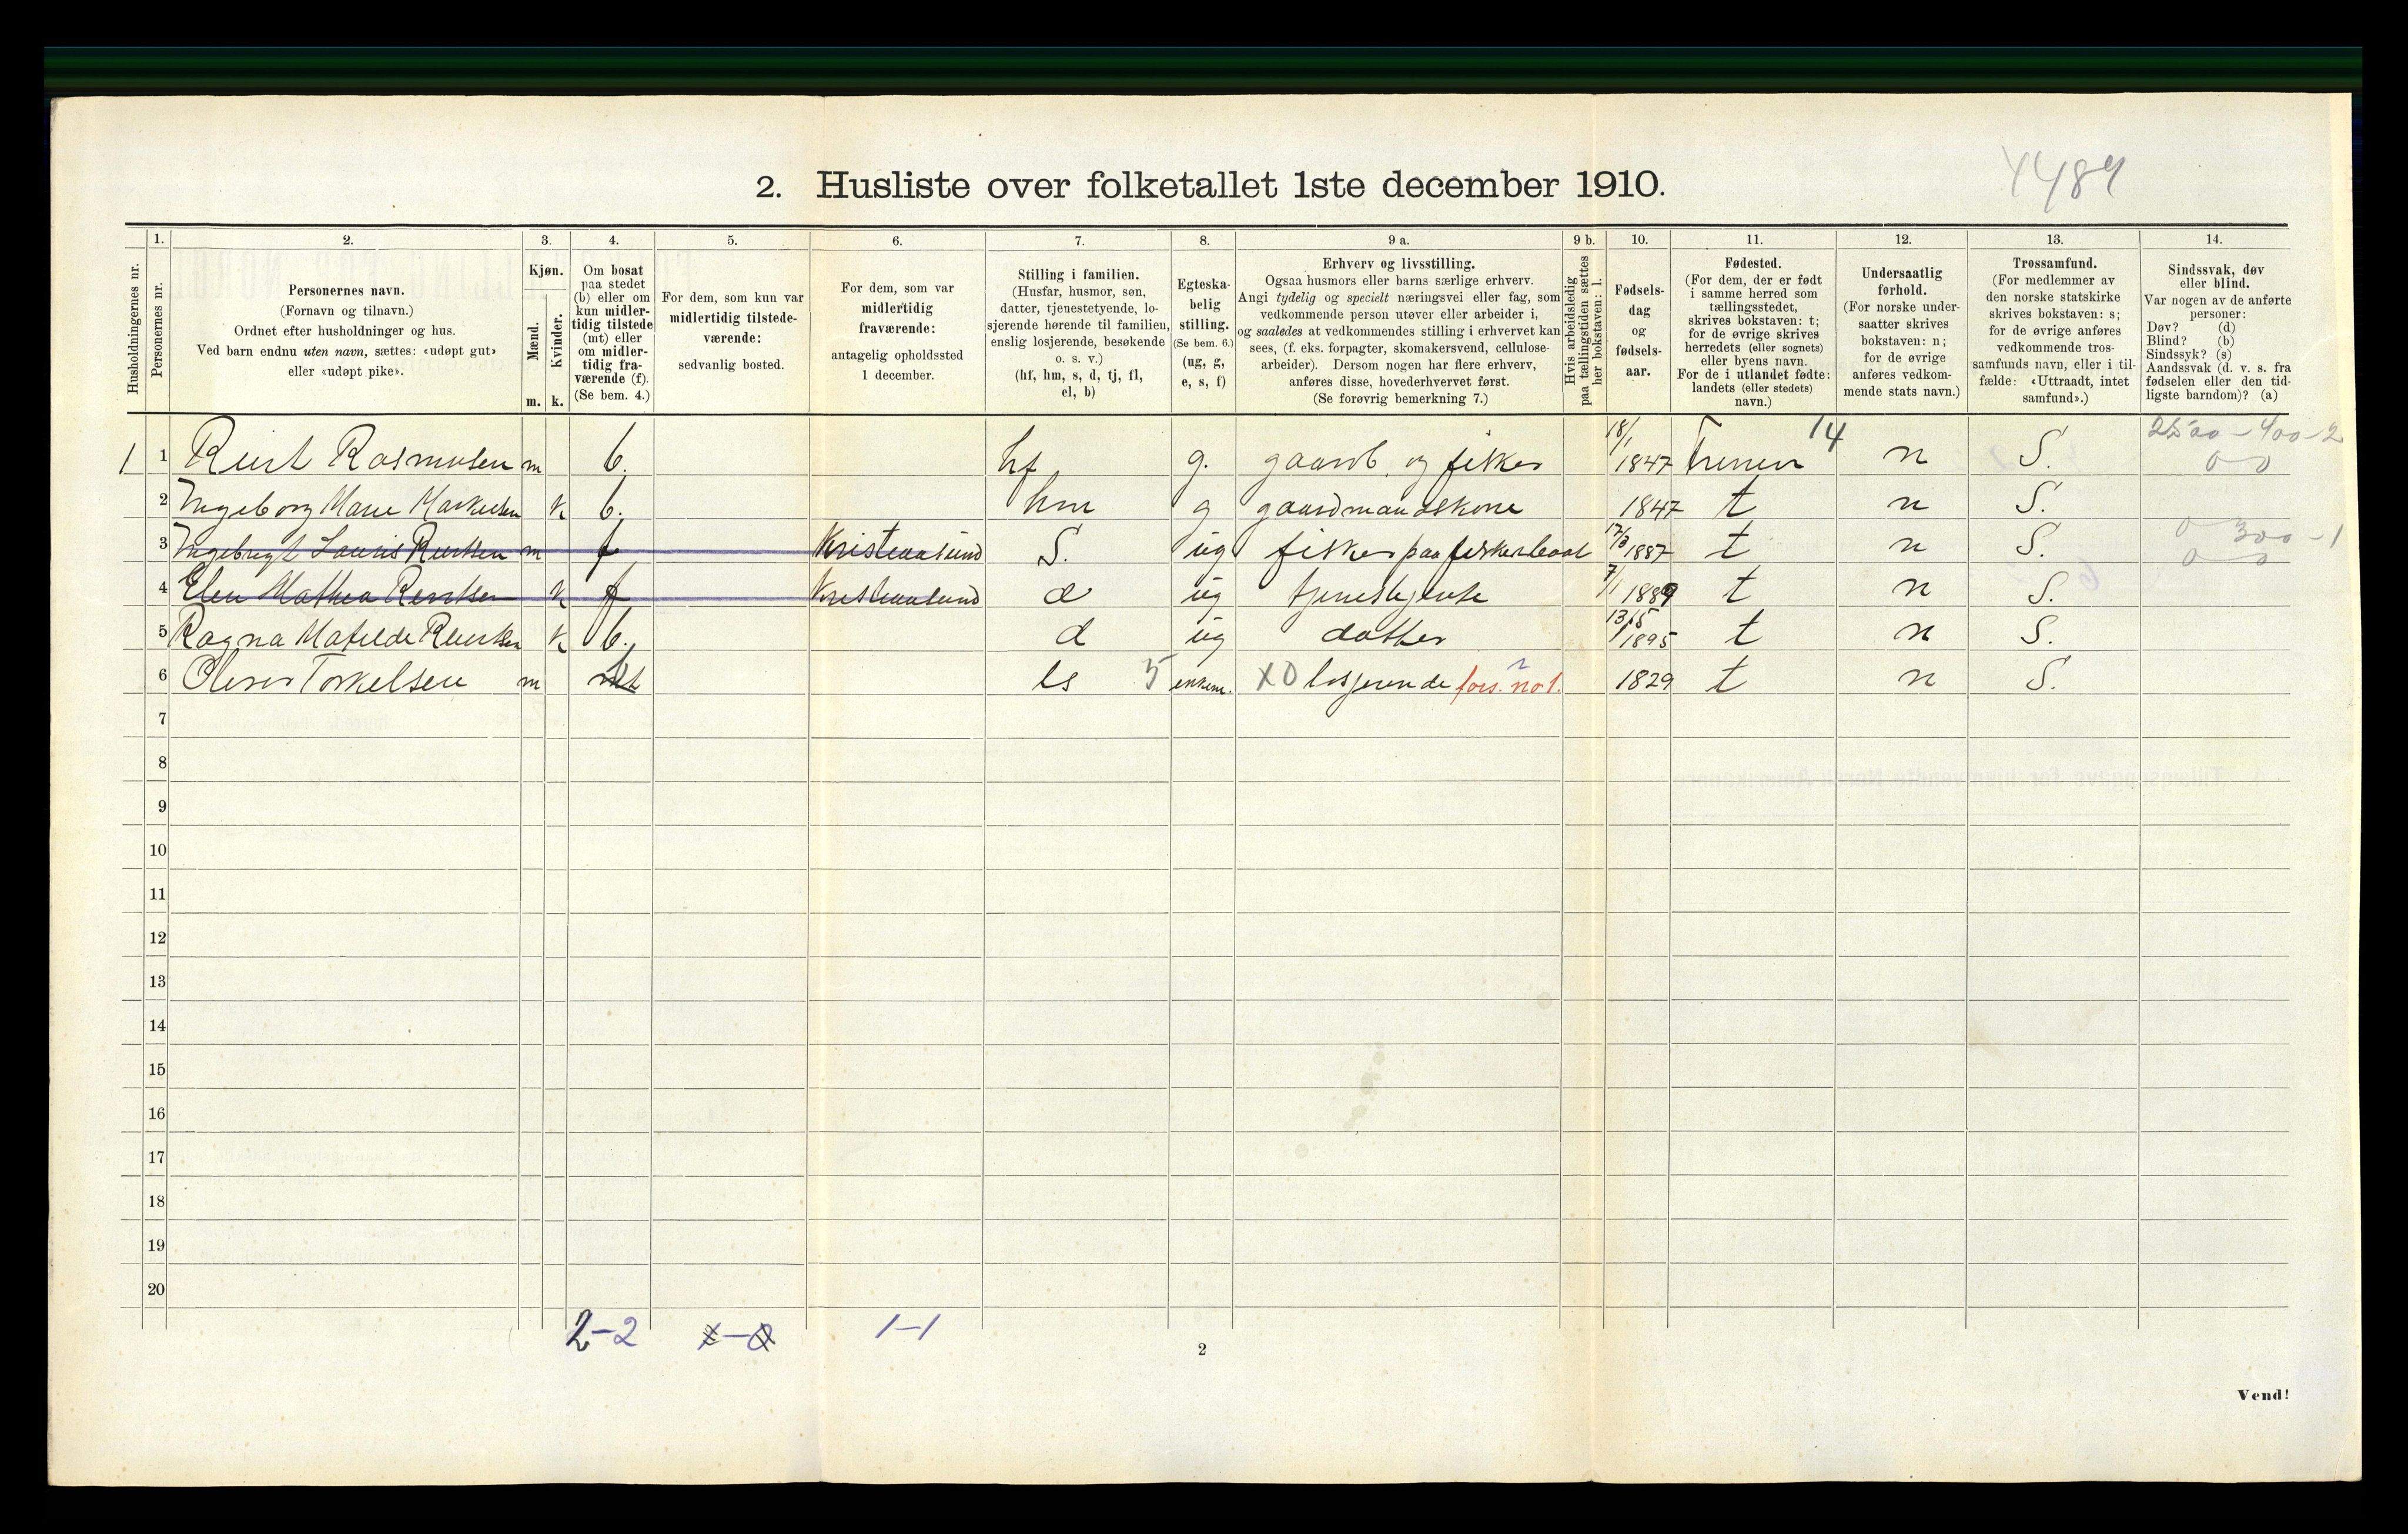 4489
2. Husliste over folketallet 1ste december 1910.
Husholdningernes nr.
1.
Personernes nr.
2.
Personernes navn.
(Fornavn og tilnavn.)
Ordnet efter husholdninger og hus.
Ved barn endnu uten navn, sættes: «udøpt gut»
eller «udøpt pike».
3.
Kjøn.
Mænd.
Kvinder.
m. k.
4.
Om bosat
paa stedet
(b) eller om
kun midler-
tidig tilstede
(mt) eller
om midler-
tidig fra-
værende (f).
(Se bem. 4.)
5.
For dem, som kun var
midlertidig tilstede-
værende:
sedvanlig bosted.
6.
For dem, som var
midlertidig
fraværende:
antagelig opholdssted
1 december.
7.
Stilling i familien.
(Husfar, husmor, søn,
datter, tjenestetyende, lo-
sjerende hørende til familien,
enslig losjerende, besøkende
o. s. v.)
(hf, hm, s, d, tj, fl,
el, b)
8.
Egteska-
belig
stilling.
(Se bem. 6.)
(ug, g,
e, s, f)
9 a.
Erhverv og livsstilling.
Ogsaa husmors eller barns særlige erhverv.
Angi tydelig og specielt næringsvei eller fag, som
vedkommende person utøver eller arbeider i,
og saaledes at vedkommendes stilling i erhvervet kan
sees, (f. eks. forpagter, skomakersvend, cellulose-
arbeider). Dersom nogen har flere erhverv,
anføres disse, hovederhvervet først.
(Se forøvrig bemerkning 7.)
9 b.
Hvis arbeidsledig
paa tællingstiden sættes
her bokstaven: l.
10.
Fødsels-
dag
og
fødsels-
aar.
11.
Fødested.
(For dem, der er født
i samme herred som
tællingsstedet,
skrives bokstaven: t;
for de øvrige skrives
herredets (eller sognets)
eller byens navn.
For de i utlandet fødte:
landets (eller stedets)
navn.)
12.
Undersaatlig
forhold.
(For norske under-
saatter skrives
bokstaven: n;
for de øvrige
anføres vedkom-
mende stats navn.)
13.
Trossamfund.
(For medlemmer av
den norske statskirke
skrives bokstaven: s;
for de øvrige anføres
vedkommende tros-
samfunds navn, eller i til-
fælde: «Uttraadt, intet
samfund».)
14.
Sindssvak, døv
eller blind.
Var nogen av de anførte
personer:
Døv? (d)
Blind? (b)
Sindssyk? (s)
Aandssvak (d. v. s. fra
fødselen eller den tid-
ligste barndom)? (a)
1 1 Rasmusen m b. hf g. gaardb. og fisker 18/1 1847 14 n S. 2500 - 400 - 2 0 0
2 Ingeborg Marie k b. hm g gaardmandskone 1847 t n S.
3 Ingebrigt m f Kristiansund S. ug fisker paa 1887 t n S. 0 300 - 1 0 0
4 Elen Mathea k f Kristiansund d ug 7/1 1889 t n S.
5 Ragna Matilde k b. d ug datter 13/5 1895 t n S.
6 Torkelsen m ls 5 enkem. X0 losjerende fors. no 1. 1829 t n S.
7
8
9
10
11
12
13
14
15
16
17
18
19
20
2-2 1-1
2
Vend!